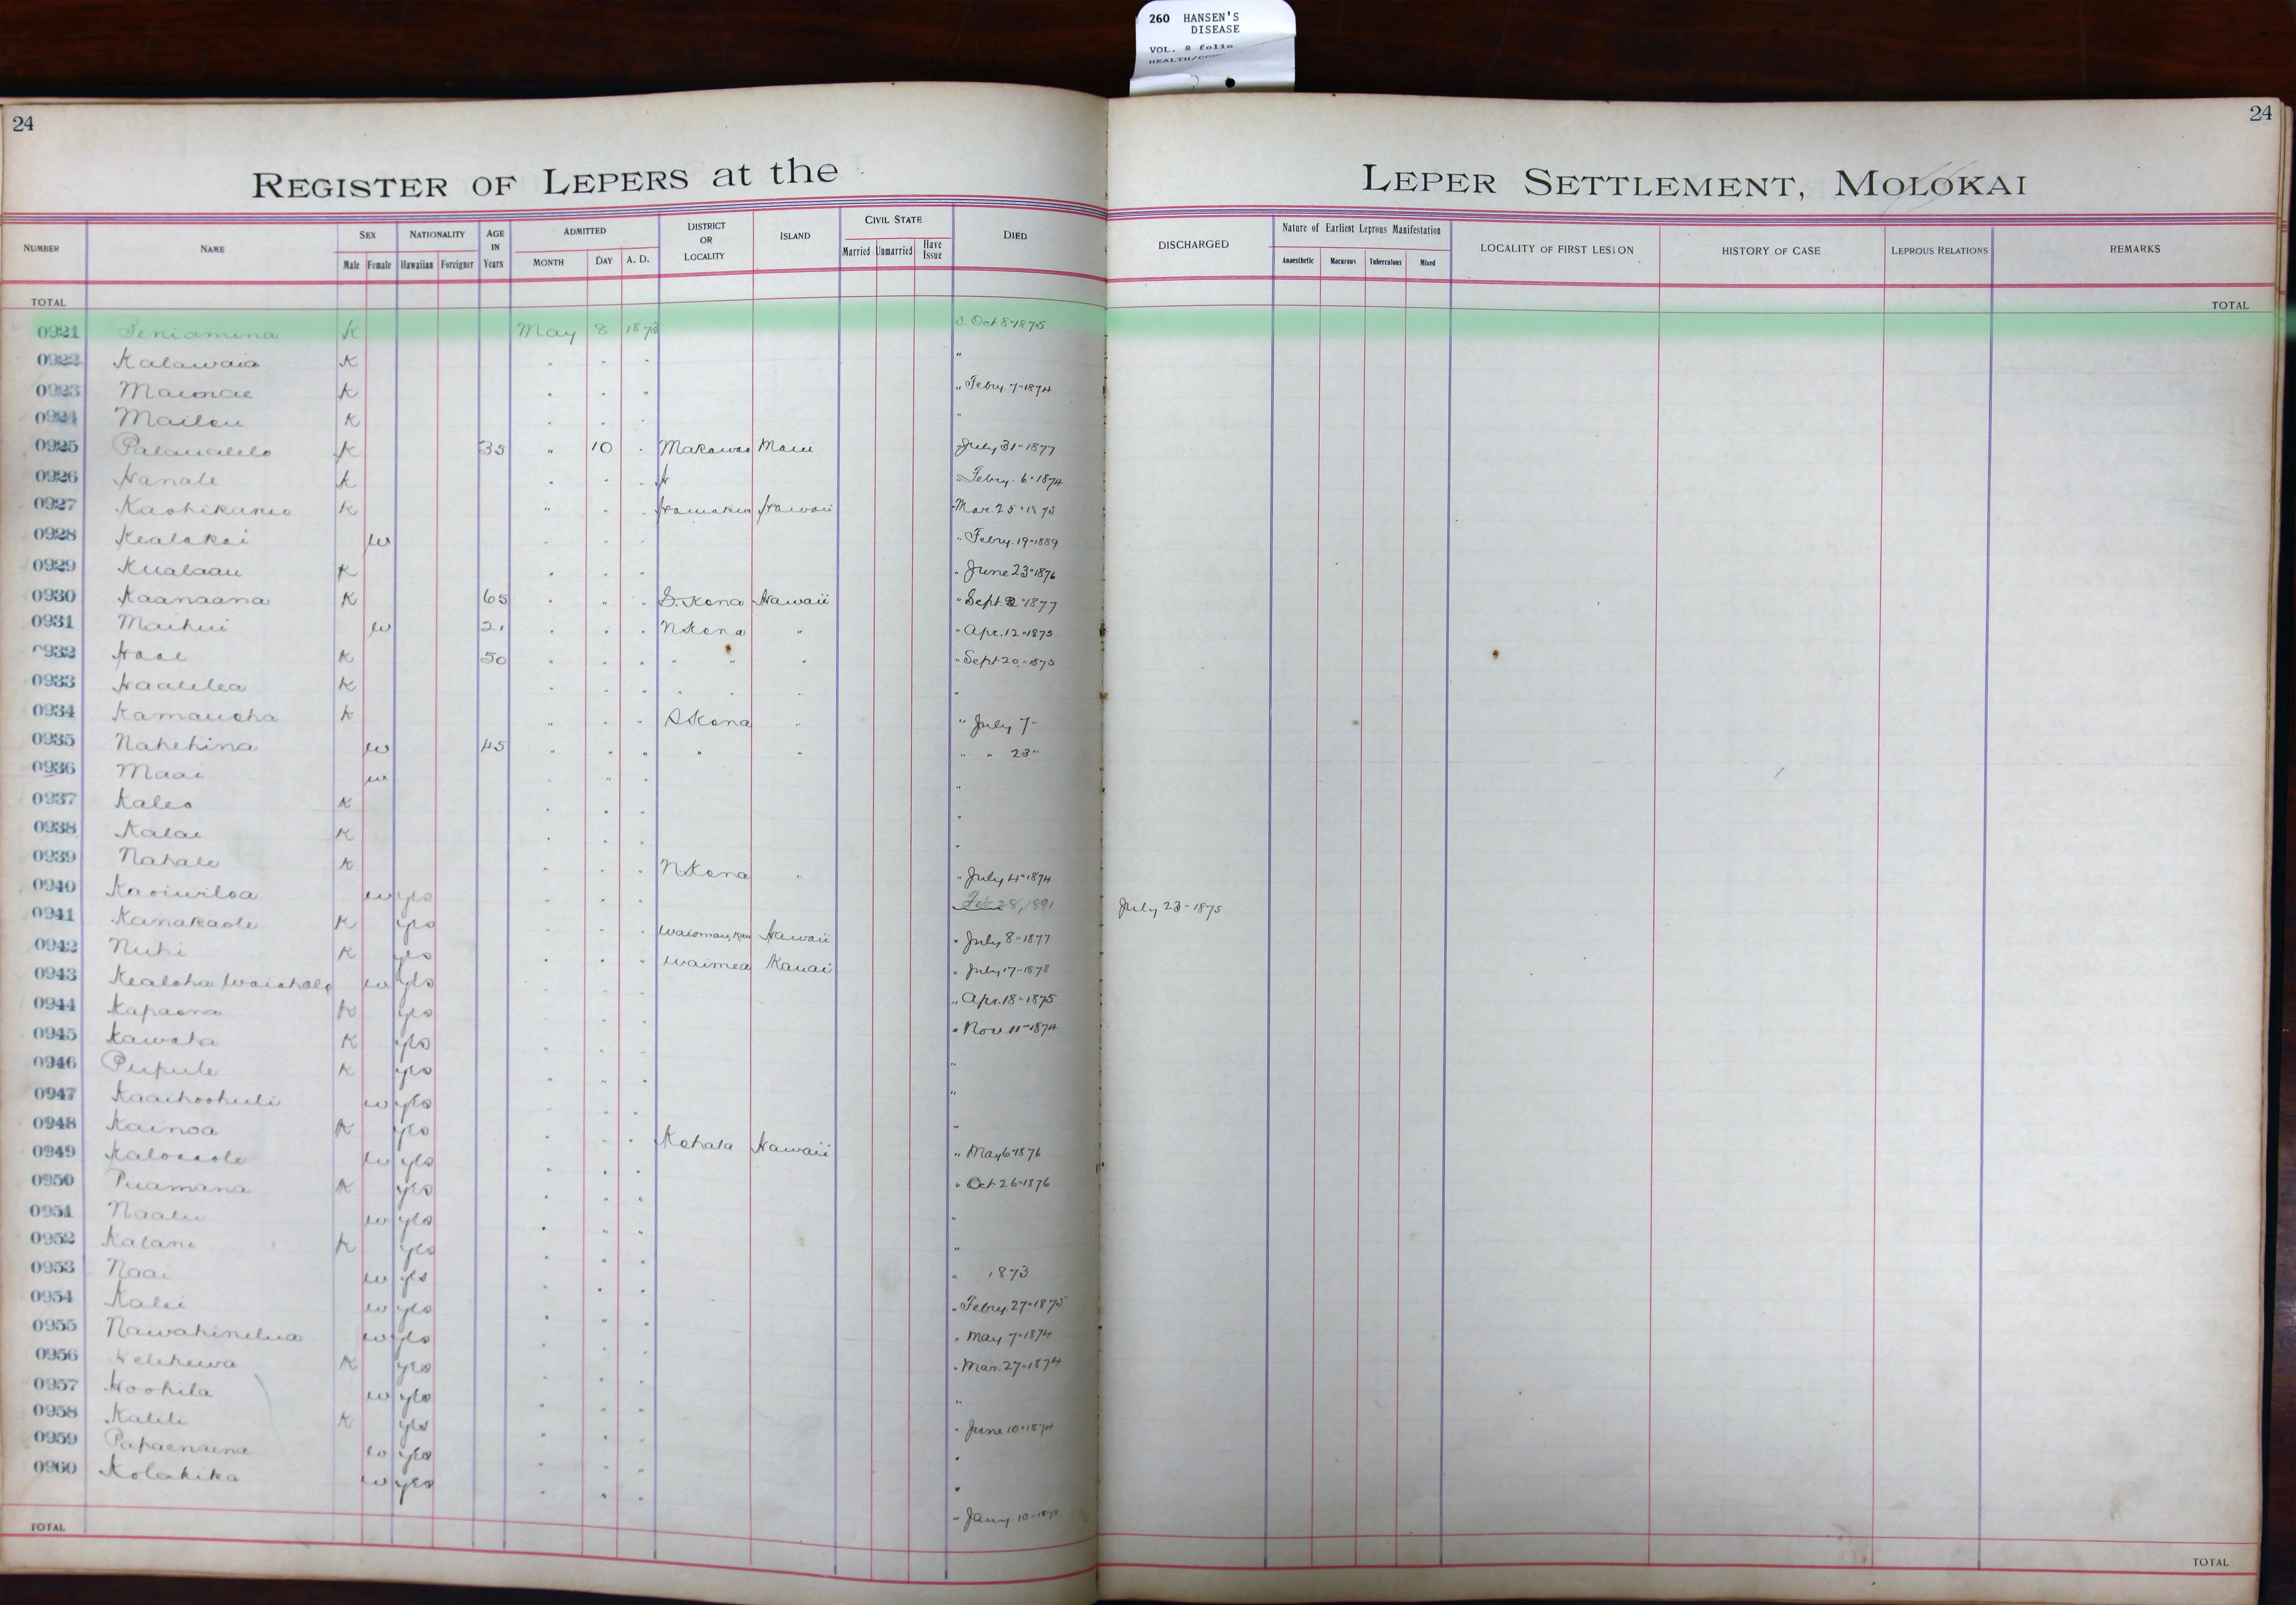 260 HANSEN'S
DISEASE
VOL. 8 folio
24
24
REGISTER OF LEPERS at the LEPER SETTLEMENT, MOLOKAI
NUMBER NAME SEX NATIONALITY AGE IN Years ADMITTED DISTRICT OR LOCALITY ISLAND CIVIL STATE DIED DISCHARGED Nature of Earliest Leprous Manifestation LOCALITY OF FIRST LESION HISTORY OF CASE LEPROUS RELATIONS REMARKS
Male Female Hawaiian Foreigner MONTH DAY A. D. Married Unmarried Have Issue Anaesthetic Macurous Tuberculous Mixed
TOTAL TOTAL
0921 Peniamina K May 8 1873 d. Oct. 8" 1875
0922 Kalawaia K " " " "
0923 K " " " " Febry. 7" 1874
0924 K " " " "
0925 K 35 " 10 " Makawao Maui " July 31" 1877
0926 Hanale K " " " " Febry. 6" 1874
0927 K " " " Hamakua Hawaii " Mar. 25" 1875
0928 Kealakai w " " " " Febry. 19" 1889
0929 Kualaau K " " " " June 23" 1876
0930 Kaanaana K 65 " " " S. Kona Hawaii " Sept 2" 1877
0931 Maihui w 21 " " " N Kona " " Apr. 12" 1875
0932 K 50 " " " " " " " Sept 20" 1875
0933 Haalilea K " " " " " " "
0934 Kamauoha K " " " S Kona " " July 7"
0935 Nahehina w 45 " " " " " " " 23"
0936 Maai w " " " "
0937 Kaleo K " " " "
0938 Kalai K " " " "
0939 Nahale K " " " N Kona " " July 4" 1874
0940 Kaoiwiloa w yes " " " Feb 28, 1891 July 23" 1875
0941 Kanakaole K yes " " " Hawaii " July 8" 1877
0942 Nuhi K yes " " " Waimea Kauai " July 17" 1878
0943 Kealoha w yes " " " " Apr. 18" 1875
0944 Kapaona K yes " " " " Nov. 11" 1874
0945 Kawaha K yes " " " "
0946 Pupule K yes " " " "
0947 Kaaihoohuli w yes " " " "
0948 Kainoa K yes " " " Kohala Hawaii " May 6" 1876
0949 w yes " " " " Oct 26" 1876
0950 Puamana K yes " " " "
0951 Naalu w yes " " " "
0952 Kalani K yes " " " " 1873
0953 Naai w yes " " " " Febry. 27" 1875
0954 Kalei w yes " " " " May 7" 1874
0955 Nawahinelua w yes " " " " Mar. 27" 1874
0956 K yes " " " "
0957 Hoohila w yes " " " " June 10" 1874
0958 Kalili K yes " " " "
0959 Papaenaena w yes " " " "
0960 Kolakika w yes " " " " Jany. 10"
TOTAL TOTAL